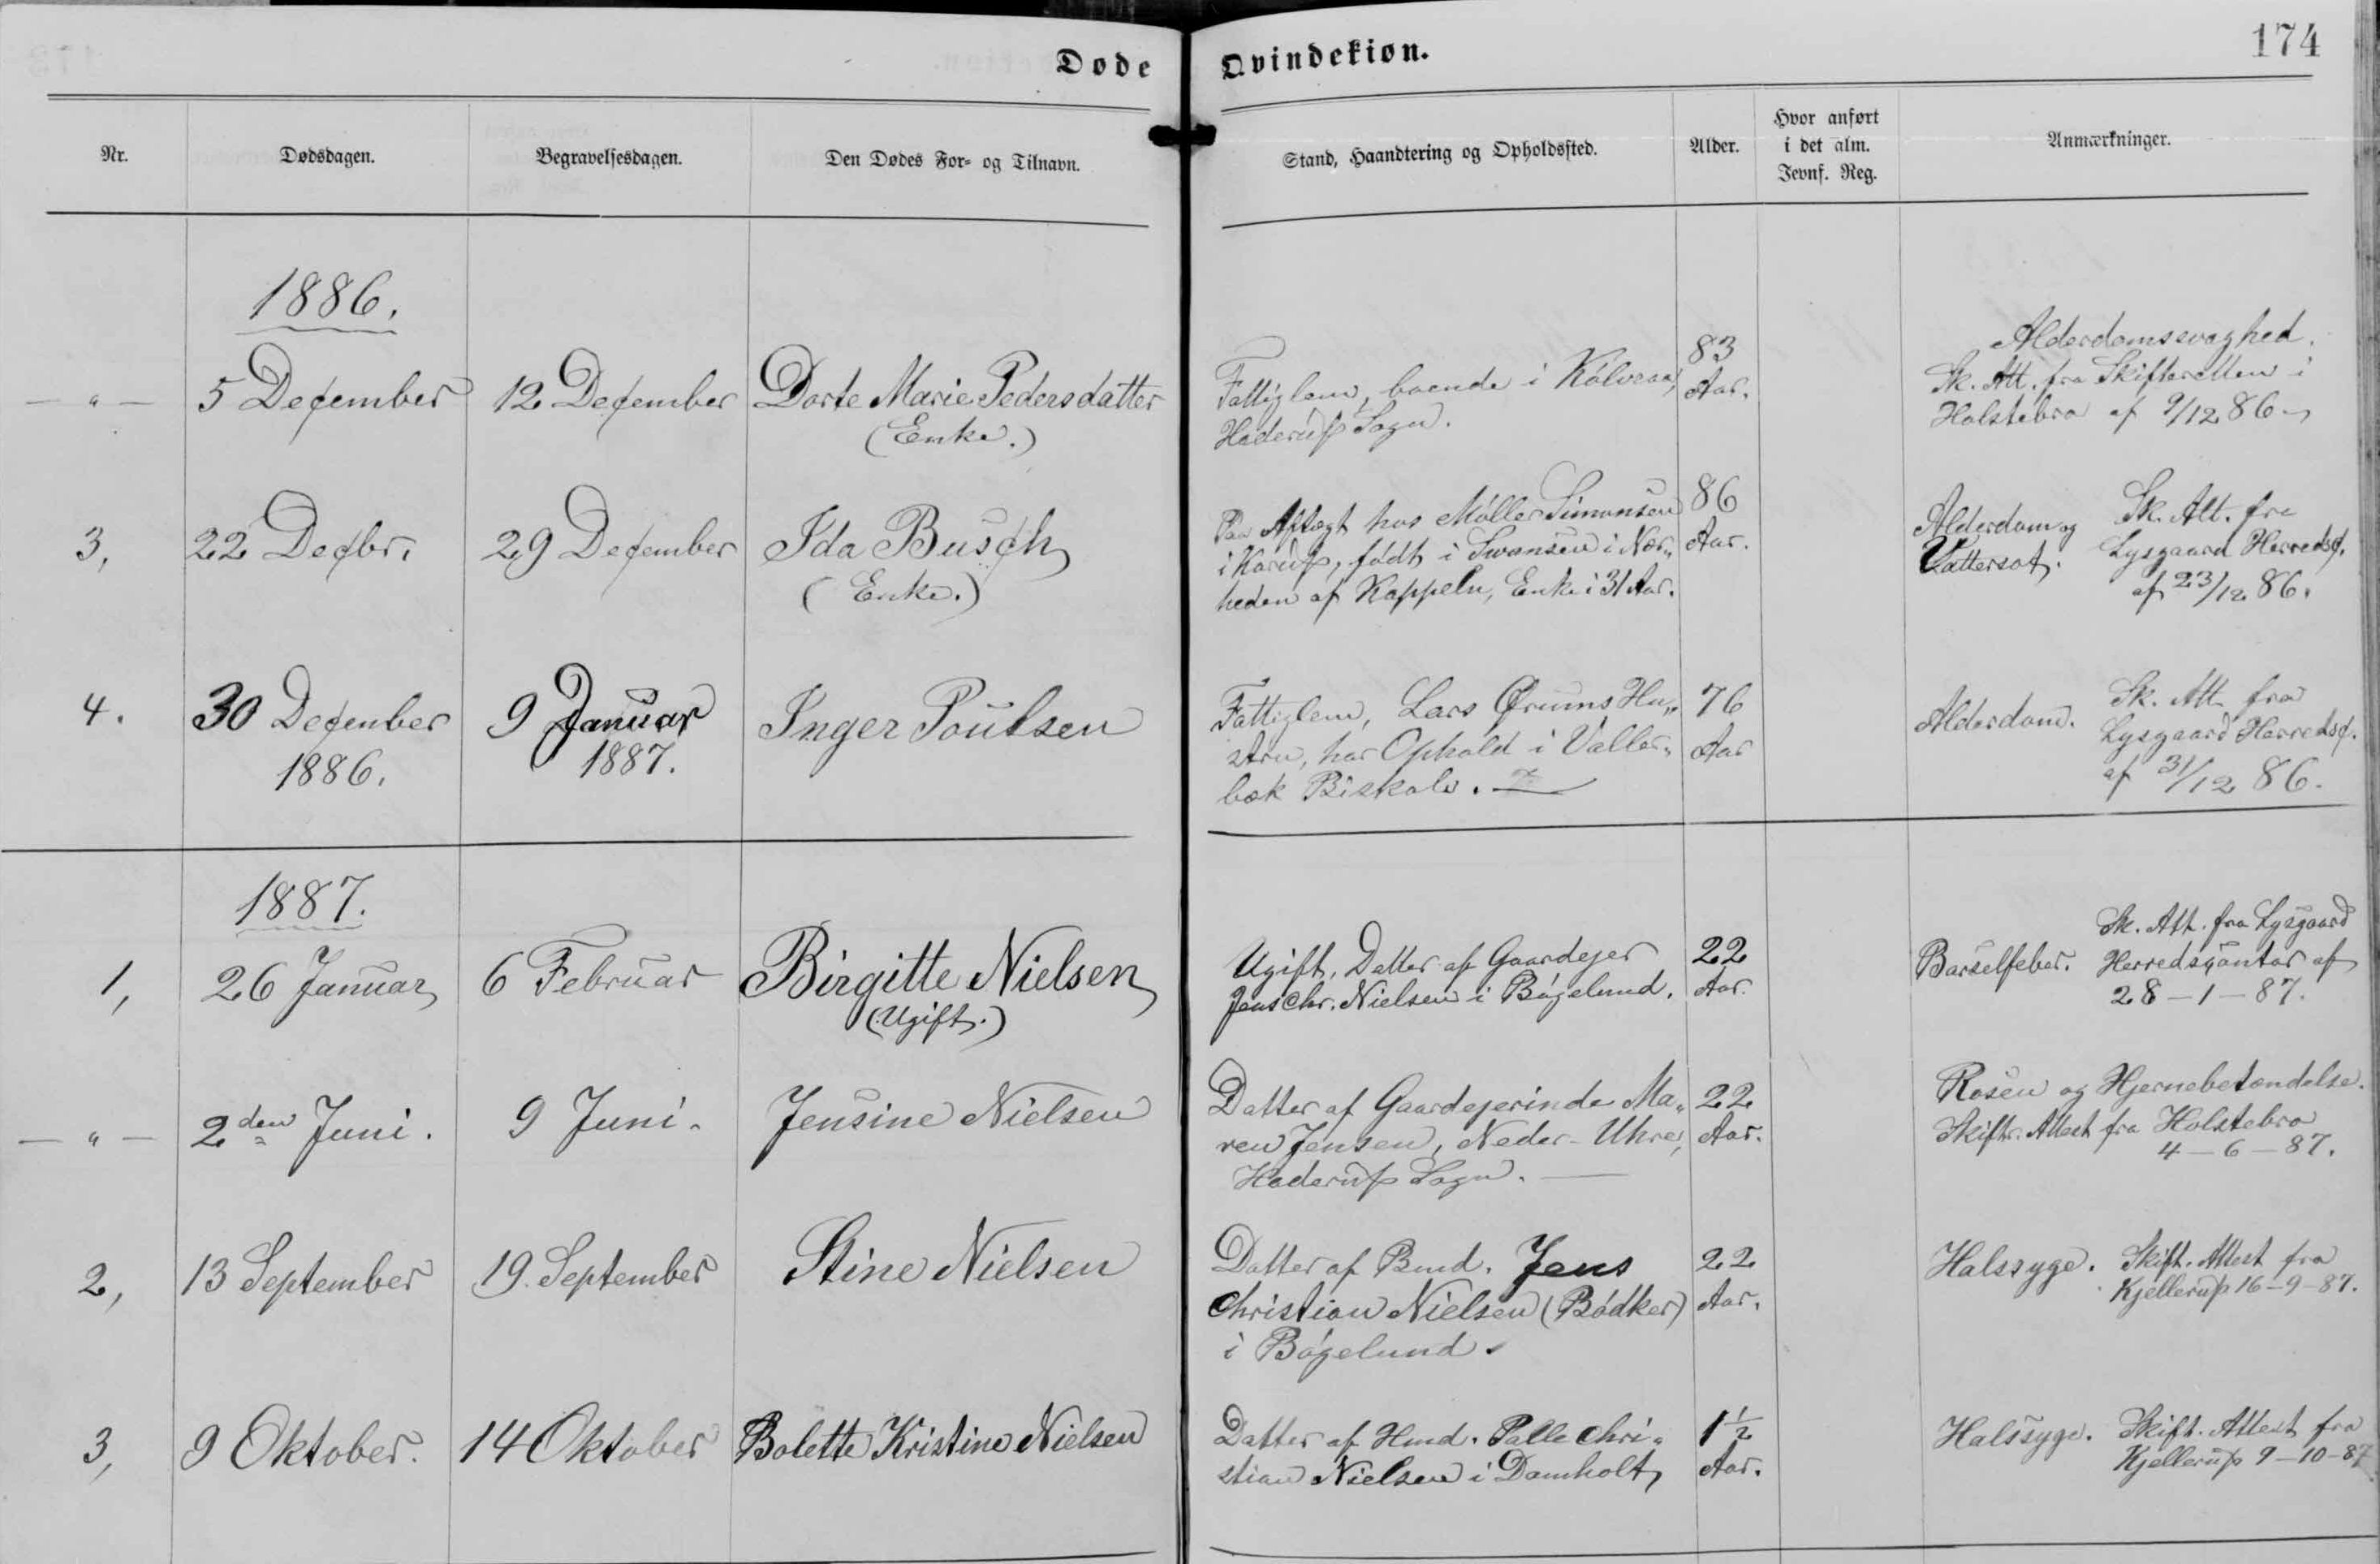 174
Døde Qvindekiøn.
Nr. Dødsdagen. Begravelsesdagen. Den Dødes For- og Tilnavn. Stand, Haandtering og Opholdssted. Alder. Hvor anført i det alm. Jevnf. Reg. Anmærkninger.
1886.
— " — 5 December 12 December Dorte Marie Pedersdatter
(Enke.)
Fattiglem, boende i Kölvraa,
Haderup Sogn.
83
Aar.
Alderdomssvaghed.
Sk. Att. fra Skifteretten i
Holstebro af 9/12 86
3, 22 Decbr. 29 December Ida Busch
(Enke.)
Paa Aftægt hos Møller Simonsen
i Karup, født i Swansen i Nær„
heden af Kappeln, Enke i 31 Aar.
86
Aar.
Alderdom og
Vattersot.
Sk. Att. fra
Lysgaard Herredsc.
af 23/12 86.
4. 30 December
1886.
9 Januar
1887.
Inger Poulsen
Fattiglem, Lars Ørums Hu„
stru, har Ophold i Valler„
bæk Biskole.
76
Aar
Alderdom.
Sk. Att. fra
Lysgaard Herredsc.
af 31/12 86.
1887.
1, 26 Januar 6 Februar Birgitte Nielsen
(Ugift.)
Ugift, Datter af Gaardejer
Jens Chr. Nielsen i Bögelund.
22
Aar.
Barselfeber.
Sk. Att. fra Lysgaard
Herredscontor af
28-1-87.
— " — 2den Juni. 9 Juni. Jensine Nielsen
Datter af Gaardejerinde Ma„
ren Jensen, Neder-Uhre,
Haderup Sogn. —
22
Aar.
Rosen og Hjernebetændelse.
Skiftr. Attest fra Holstebro
4-6-87.
2, 13 September 19. September Stine Nielsen
Datter af Bmd. Jens
Christian Nielsen (Bödker)
i Bögelund.
22
Aar.
Halssyge.
Skift. Attest fra
Kjellerup 16-9-87.
3, 9 Oktober. 14 Oktober Bolette Kristine Nielsen
Datter af Hmd. Palle Chri„
stian Nielsen i Damholt,
1½
Aar.
Halssyge.
Skift. Attest fra
Kjellerup 9-10-87